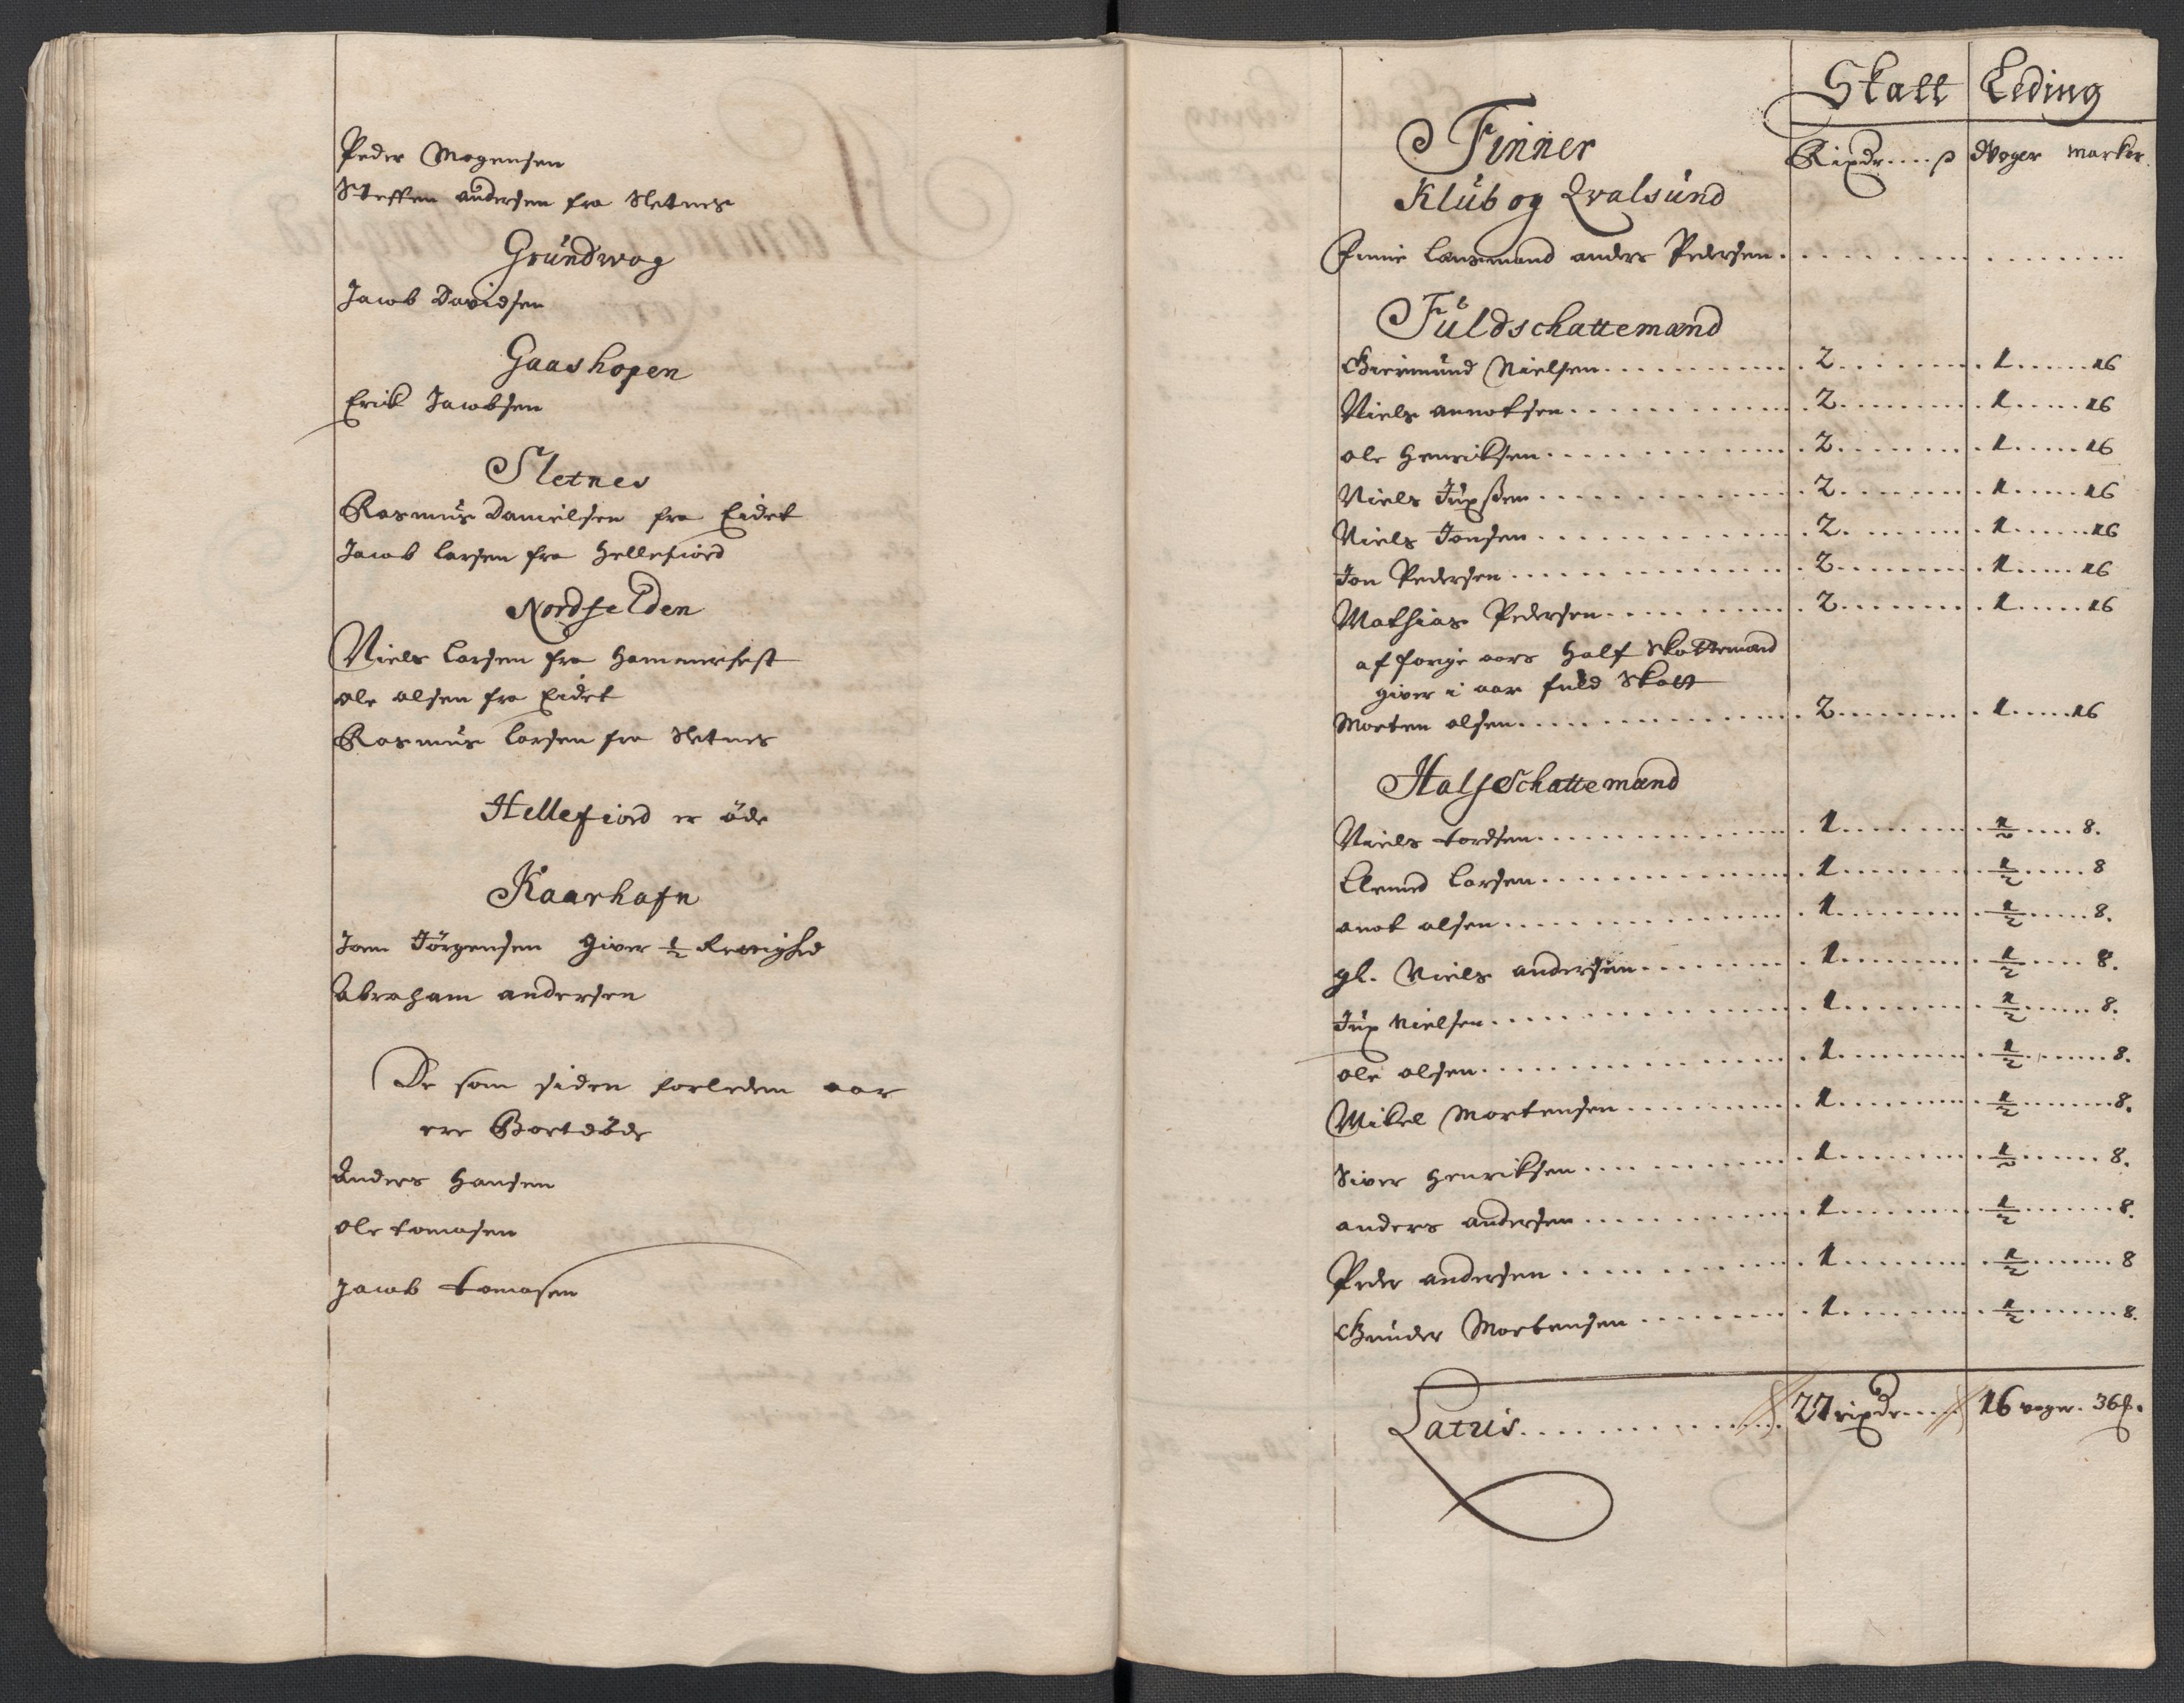 Peder Mogensen
Steffen andersen fra Sletnes
Grundwog
Jacob Davidsen
Gaashopen
Erick Jacobsen
Sletnes
Rasmus Danielsen fra Eidet
Jacob Larsen fra Hellefiord
Nordfelden
Niels Larsen fra Hammerfest
ole olsen fra Eidet
Rasmus Larsen fra Sletnes
Hellefiord er öde
Kaarhafn
Joen Jörgensen giver 1/2 Rettighed
Abraham andersen
De som siden forleden aar
ere Bortdöde
Anders Hansen
ole tomasen
Jacob tomasen
Skatt Leding
Finner Rixdr .... s Woger Marker
Klub og Qvalsund
Finne Lensmand anders Pedersen
Fuldschattemænd
Giermund Nielsen 2 1 16
Niels annotsen 2 1 16
ole Henriksen 2 1 16
Niels Jupsen 2 1 16
Niels Jonsen 2 1 16
Jon Pedersen 2 1 16
Mathias Pedersen 2 1 16
af forige aars Half Skattemænd
giver i aar fuld Skatt
Morten olsen 2 1 16
Halfschattemænd
Niels tordsen 1 1/2 8.
Clemed Larsen 1 1/2 8
anot olsen 1 1/2 8.
gl. Niels andersen 1 1/2 8.
Jup Nielsen 1 1/2 8.
ole olsen 1 1/2 8.
Mikel Mortensen 1 1/2 8.
Siver Henriksen 1 1/2 8.
anders andersen 1 1/2 8.
Peder andersen 1 1/2 8
Gunder Mortensen 1 1/2 8.
Latus 27 rixdr 16 woger. 36